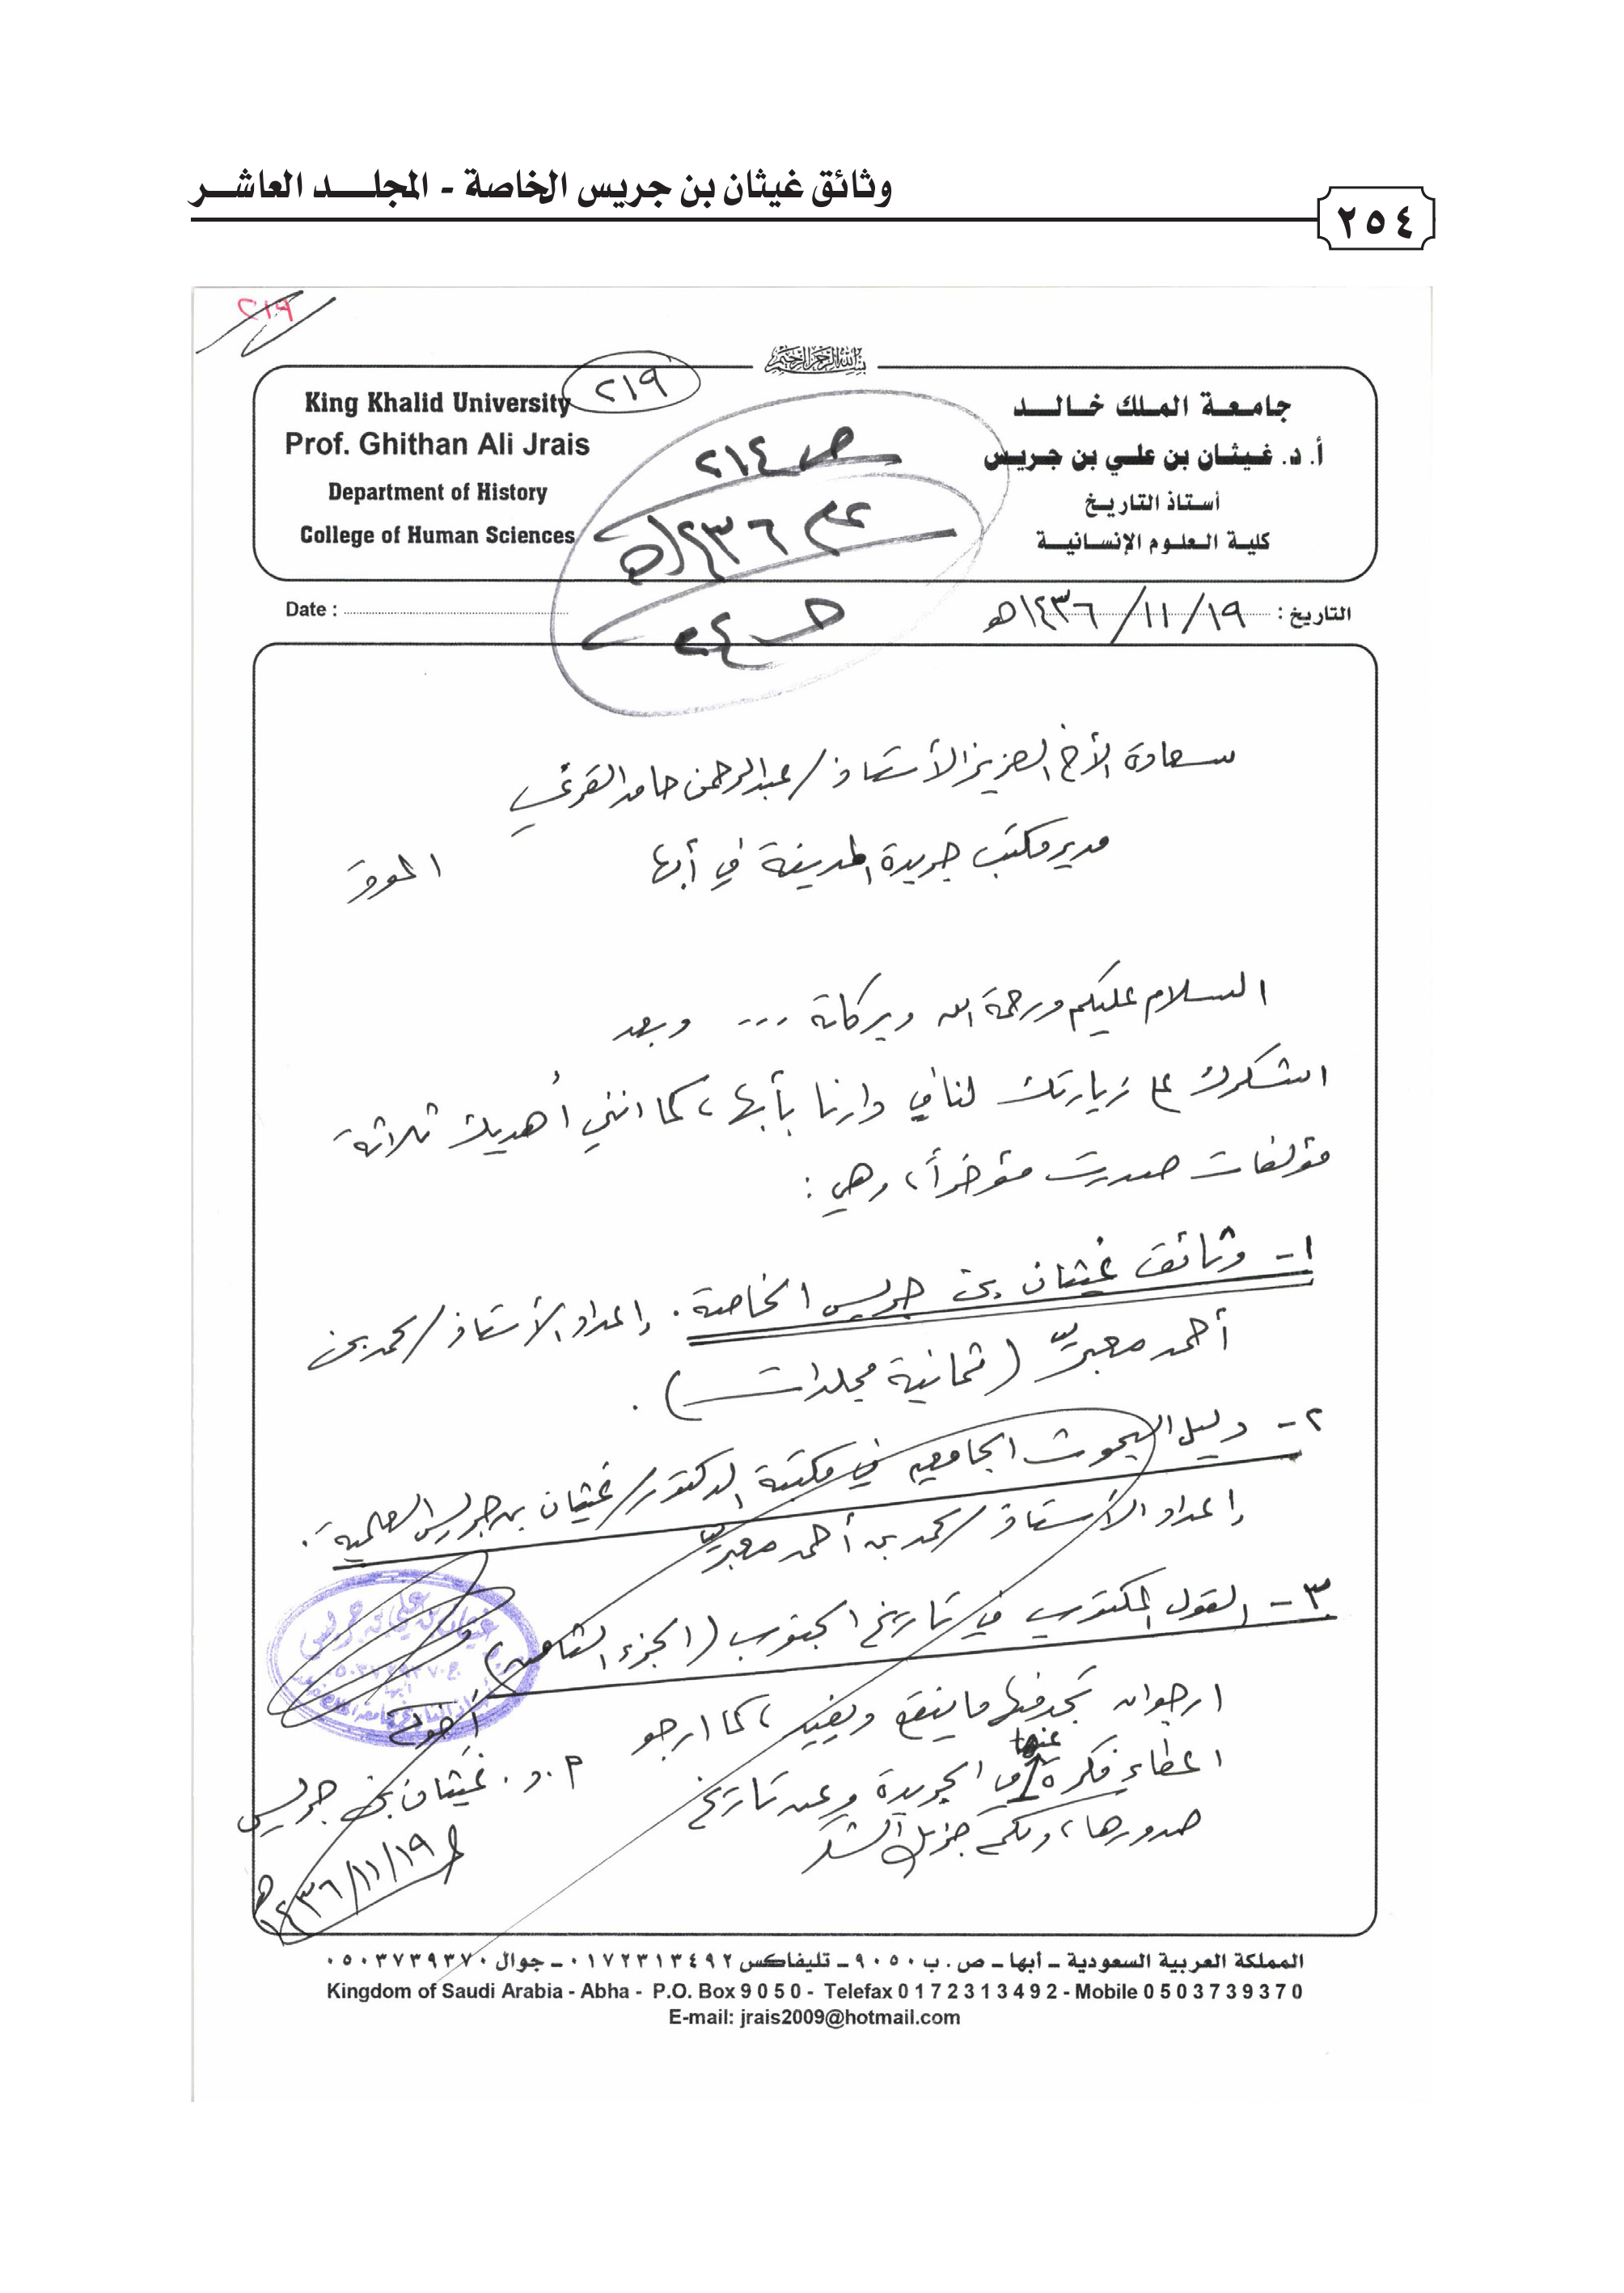 وثائق غيثان بن جريس الخاصة - المجلد العاشر
٢٥٤
٢١٩
بسم الله الرحمن الرحيم
٢١٩
King Khalid University
Prof. Ghithan Ali Jrais
Department of History
College of Human Sciences
جامعة الملك خالد
أ. د. غيثان بن علي بن جريس
أستاذ التاريخ
كلية العلوم الإنسانية
ص ٢١٤
٢٤
Date :
التاريخ : ١٤٣٦/١١/١٩هـ
سعادة الأخ العزيز الأستاذ/ عبدالرحمن حامد القرني
مدير مكتب جريدة المدينة في أبها الموقر
السلام عليكم ورحمة الله وبركاته ... وبعد
اشكرك على زيارتك لنا في دارنا بأبها، كما انني أُهديك ثلاثة
مؤلفات صدرت مؤخراً، وهي :
١- وثائق غيثان بن جريس الخاصة. إعداد الأستاذ/ محمد بن
أحمد معبر (ثمانية مجلدات).
٢- دليل البحوث الجامعيه في مكتبة الدكتور/ غيثان بن جريس العلمية.
إعداد الأستاذ/ محمد بن أحمد معبر
٣- القول المكتوب في تاريخ الجنوب (الجزء الثامن)
ارجو ان تجد فيها ما ينفع ويفيد، كما ارجو
اعطاء فكرة عنها في الجريدة وعن تاريخ
صدورها، ولكم جزيل الشكر
غيثان بن علي بن جريس
أخوك
أ.د. غيثان بن جريس
١٤٣٦/١١/١٩هـ
المملكة العربية السعودية - أبها - ص. ب ٩٠٥٠ - تليفاكس ٠١٧٢٣١٣٤٩٢ - جوال ٠٥٠٣٧٣٩٣٧٠
Kingdom of Saudi Arabia - Abha - P.O. Box 9 0 5 0 - Telefax 0 1 7 2 3 1 3 4 9 2 - Mobile 0 5 0 3 7 3 9 3 7 0
E-mail: jrais2009@hotmail.com